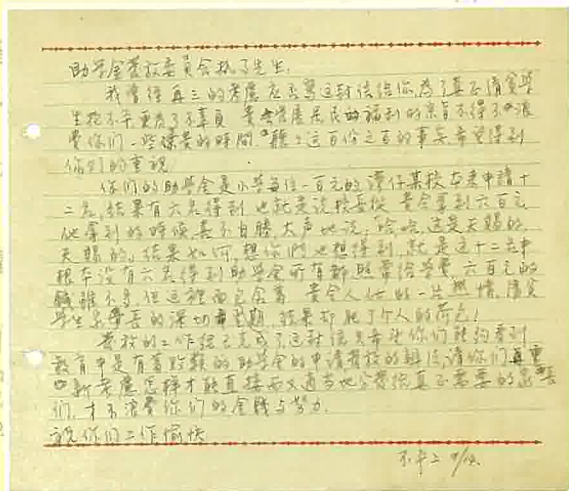 助学金发放委员会执事先生:
我曾经再三的考虑 应否写这封信给你,为了真正清贫学
生抱不平 更为了不辜负 贵 居民的福利的宗旨不得不浪
费你们一些保贵的时间 听 这百份之百的事实 希望得到
你们的重视
你们的助学金是小学每位一百元的 潭仔某校本来申请十
二名,结果有六名得到 也就是说校委从 贵会拿到六百元
他拿到的时候 喜不自胜 大声地说:哈哈,这是天赐的,
天赐的。结果如何,想你们也想得到,就是这十二名中
根本没有六名得到助学金 所有都 学费 六百元的
虽不多 但这里面包含着 贵会人仕的一片热情,清贫
学生 家长的深切期望,结果却肥了个人的荷包!
发放的工作经已完成了 这封信只希望你们能够看到
教育中是有着 的助学金的申请发放的 请你们再重
新考虑怎样才能直接而又适当地分发给真正需要的 
们,才不浪费你们的金钱与努力.
祝你们工作愉快
不平上